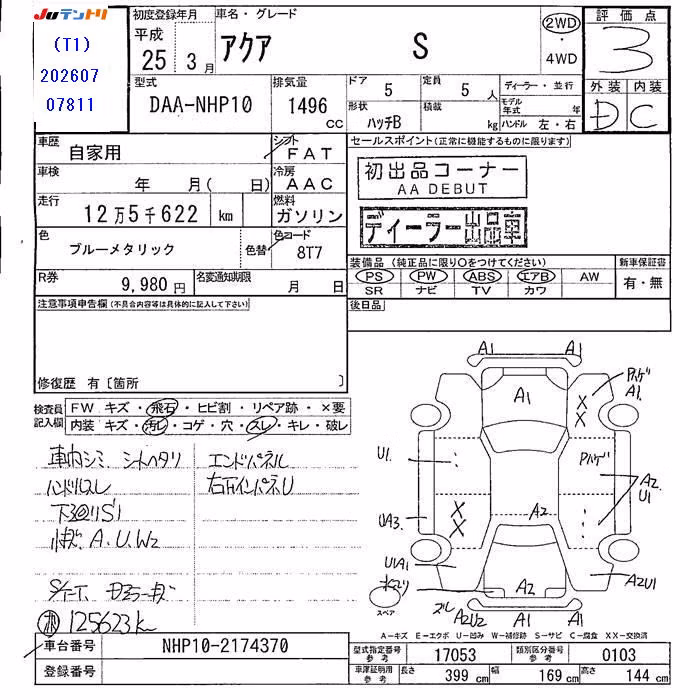 Juテントリ
(T1)
202607
07811
初度登録年月
平成
25年 3月
車名・グレード
アクア S
2WD
・
4WD
評価点
3
型式
DAA-NHP10
排気量
1496
CC
ドア
5
定員
5人
形状
ハッチB
積載
kg
ディーラー・並行
モデル年式
年
ハンドル 左・右
外装 内装
D C
車歴
自家用
シフト
FAT
車検
年 月( 日)
冷房
AAC
走行
12万5千622 km
燃料
ガソリン
色
ブルーメタリック
色替
色コード
8T7
R券
9,980円
名変通知期限
月 日
セールスポイント(正常に機能するものに限ります)
初出品コーナー
AA DEBUT
ディーラー出品車
装備品(純正品に限り○をつけてください)
PS PW ABS エアB AW
SR ナビ TV カワ
新車保証書
有・無
後日品
注意事項申告欄(不具合内容等は具体的に記入して下さい)
修復歴 有〔箇所 〕
検査員記入欄
FW キズ・飛石・ヒビ割・リペア跡・×要
内装 キズ・汚レ・コゲ・穴・スレ・キレ・破レ
車内シミ シートヘタリ
ハンドルスレ
下回りS1
エンドパネル
右リインパネU
A.U.W2
125623K
A1 A1
A1
A1.
X
X
U1.
A2
U1
UA3.
X
X
A2
U1A1
A2
A2U1
スペア
スレ
A2U2
A1 A1
A1
A-キズ E-エクボ U-凹み W-補修跡 S-サビ C-腐食 XX-交換済
車台番号
NHP10-2174370
登録番号
型式指定番号
参考
17053
類別区分番号
参考
0103
車庫証明用
参考
長さ
399 cm
幅
169 cm
高さ
144 cm